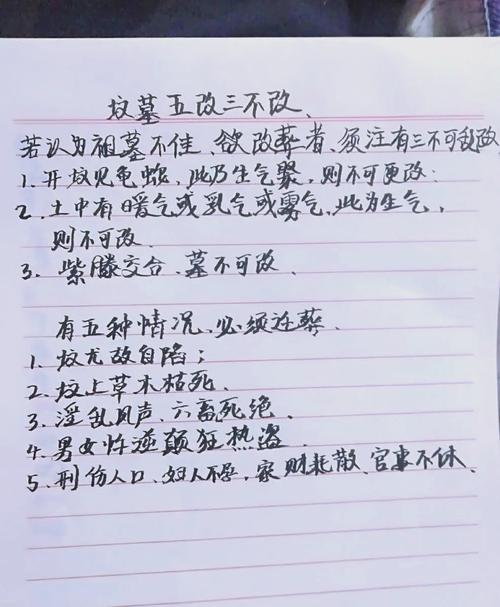 坟墓五改三不改、
若认为祖墓不佳、欲改葬者、须注有三不可乱改
1. 开坟见龟蛇、此乃生气聚、则不可更改:
2. 土中有暖气或乳气或雾气、此为生气,
则不可改.
3. 紫藤交合、墓不可改、
有五种情况、必须迁葬.
1. 坟尤故自陷;
2. 坟上草木枯死.
3. 淫乱风声、六畜死绝.
4. 男女忤逆颠狂热盗.
5. 刑伤人口、妇人不孕,家财耗散、官事不休、